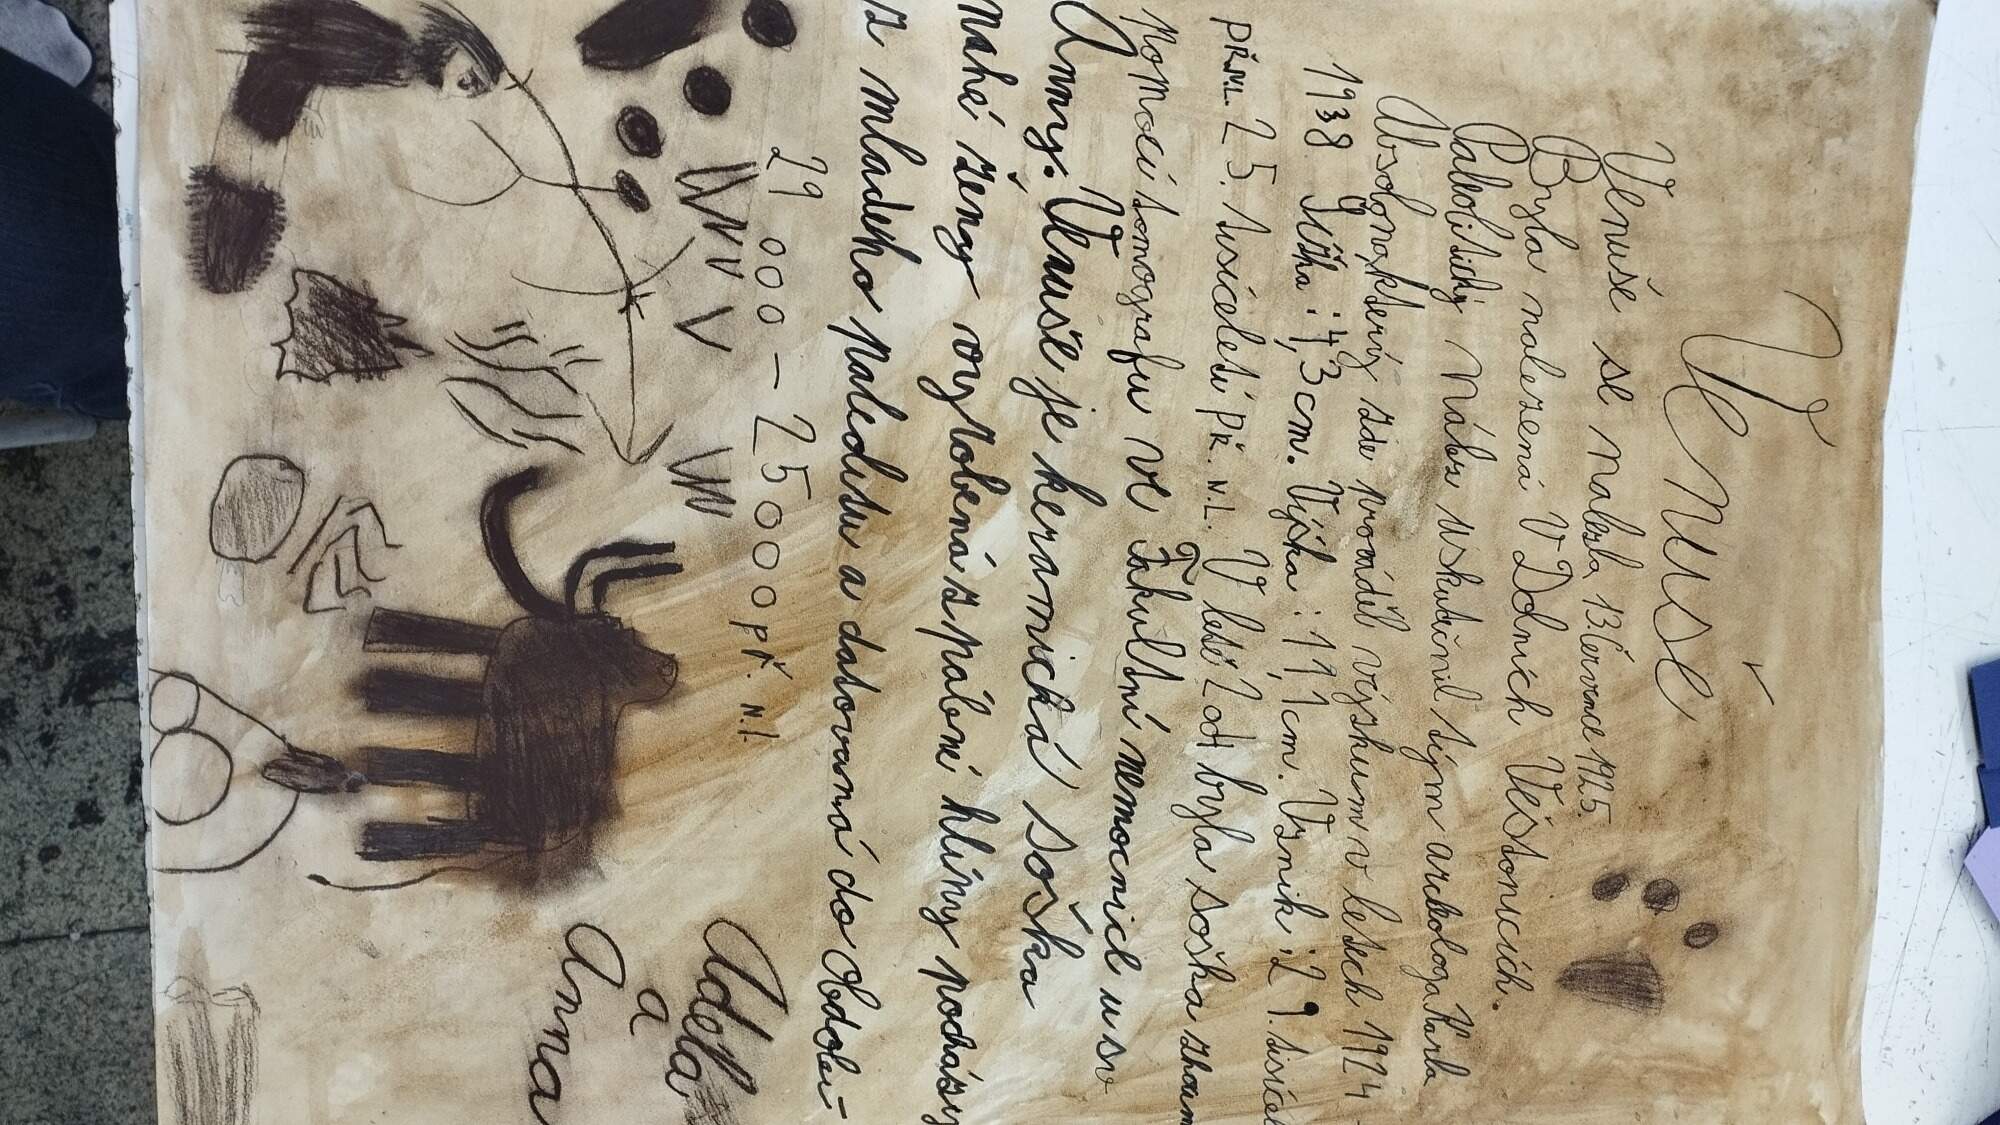 Venuše
Venuše se nalezla 13 července 1925.
Byla nalezená V Dolních Věstonicích.
Paleolitický Nález uskutečnil tým archeologa Karla
Absolona, který zde prováděl výzkum v letech 1924 -
1938 Šířka : 4,3 cm. Výška : 11,1 cm. Vznik : 29. tisícel
PŘ.N.L. 25. tisíciletí PŘ. N.L. V létě 2004 byla soška zkoum
Pomocí tomografu ve Fakultní nemocnice u sv
Anny. Venuše je keramická soška
nahé ženy vyrobená z pálené hlíny pocházej
z mladého paleolitu a datovaná do Období
29 000 - 25000 PŘ. N.l.
Adéla
a
Anna